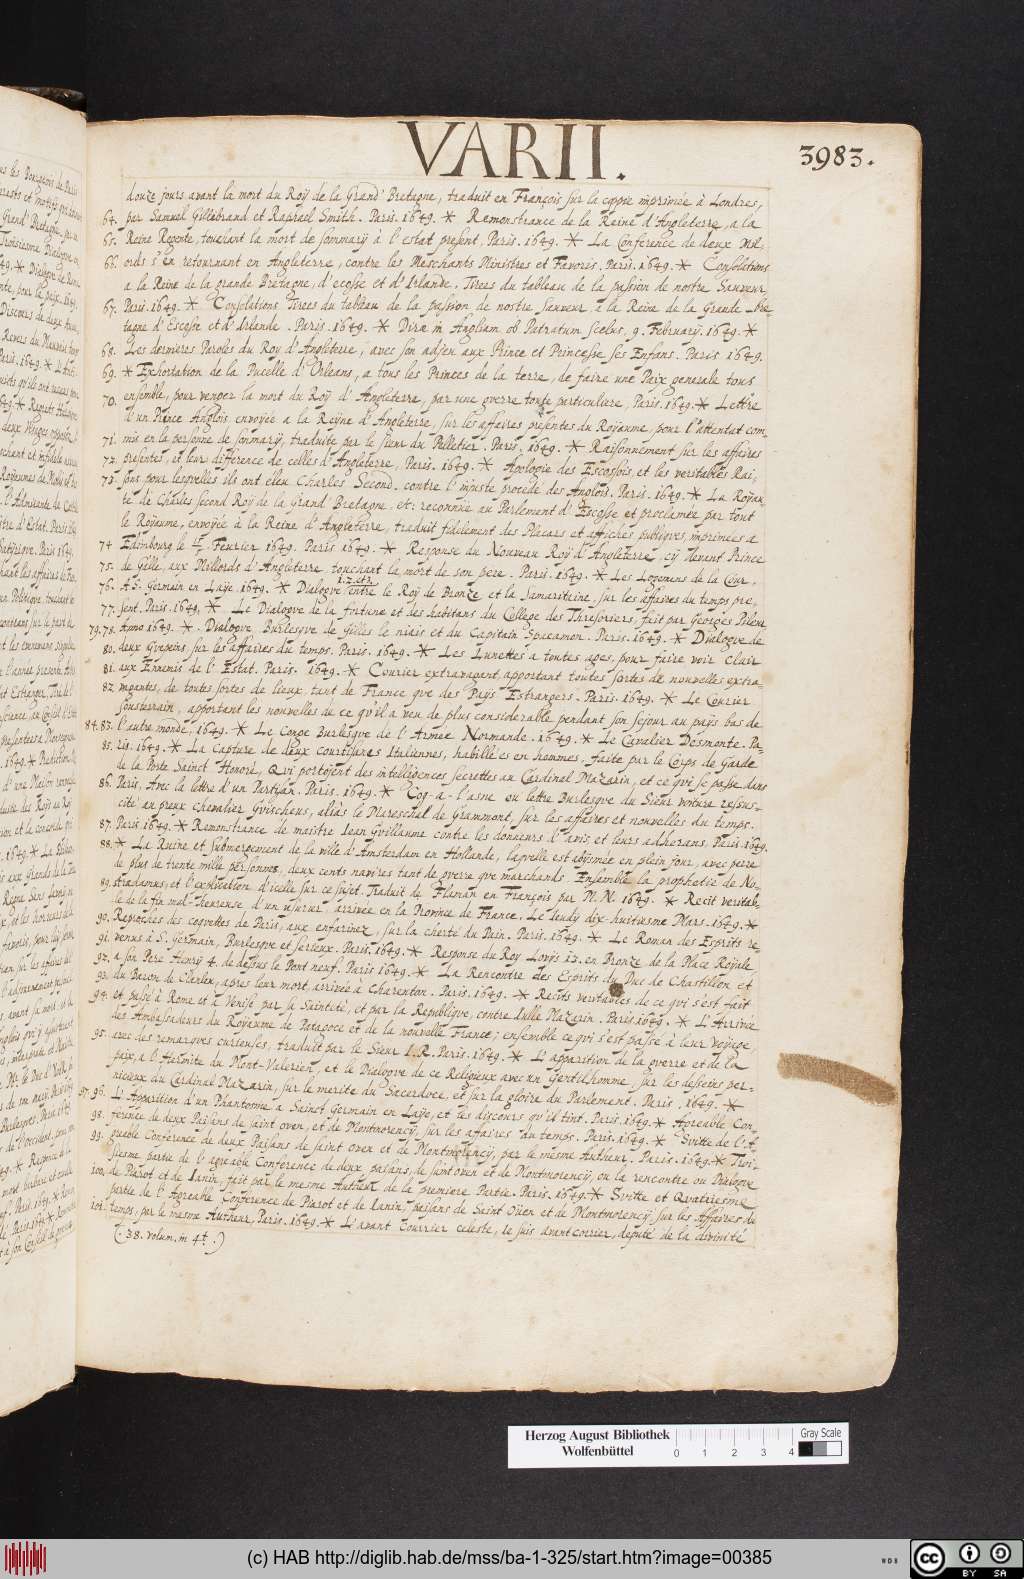 VARII.
3983.
douze jours avant la mort du Roÿ de la Grand' Bretagne, traduit en François sur la coppie imprimée à Londres,
64. par Samuel Gillebrand et Raphael Smith. Paris. 1649. * Remonstrance de la Reine d'Angleterre, a la
65. Reine Regente, touchant la mort de son marÿ & l'estat present. Paris. 1649. * La Conference de deux Mil-
66. ords s'en retournant en Angleterre, contre les Meschants Ministres et Favoris. Paris. 1649. * Consolations
a la Reine de la grande Bretagne, d'ecosse et d'Irlande. Tirees du tableau de la passion de nostre Sauveur,
67. Paris. 1649. * Consolations Tirees du tableau de la passion de nostre Sauveur, à la Reine de la Grande Bre-
tagne d'Escosse et d'Irlande. Paris. 1649. * Diræ in Angliam ob Patratum scelus, 9. Februarÿ. 1649. *
68. Les dernieres Paroles du Roy d'Angleterre, avec son adjeu aux Prince et Princesse ses Enfans. Paris 1649.
69. * Exhortation de la Pucelle d'Orleans, a tous les Princes de la terre, de faire une Paix generale tous
70. ensemble, pour venger la mort du Roÿ d'Angleterre, par une gverre toute particuliere, Paris. 1649. * Lettre
d'un Prince Anglois envoyée a la Reÿne d'Angleterre, sur les affaires presentes du Royaume, pour l'attentat com-
71. mis en la personne de son marÿ, traduite par le sieur du Pelletier. Paris, 1649. * Raisonnement sur les affaires
72. presentes, et leur difference de celles d'Angleterre, Paris. 1649. * Apologie des Escossois, et les veritables Rai-
73. sons pour lesqvelles ils ont eleu Charles Second. contre l'injuste procede des Anglois. Paris. 1649. * La Royau-
té de Charles second Roÿ de la Grand' Bretagne, etc: reconnüe au Parlement d'Escosse et proclamée par tout
le Roÿaume, envoyée à la Reine d'Angleterre, traduit fidelement des Placars et affiches publiqves imprimées a
74 Edinbourg le Feurier 1649. Paris 1649. * Response du Nouveau Roÿ d'Angleterre, cÿ devant Prince
75. de Galle, aux Millords d'Angleterre touchant la mort de son pere. Paris. 1649. * Les Logemens de la Cour,
76. A S. Germain en Laÿe. 1649. * Dialogve 1. 2. et 3. entre le Roy de Bronze et la Samaritaine, sur les affaires du temps pre-
77. sent. Paris. 1649, * Le Dialogve de la fortune et des habitans du College des Thresoriers, fait par Georges Pileur
79. 78. Anno 1649. * Dialogve Burlesqve de Gilles le niais et du Capitan Spacamon. Paris. 1649. * Dialogve de
80. deux Gvepeins sur les affaires du temps. Paris. 1649. * Les Lunettes a toutes ages, pour faire voir clair
81. aux Ennemis de l'Estat. Paris. 1649. * Courier extravagant apportant toutes sortes de nouvelles extra-
82. vagantes, de toutes sortes de lieux, tant de France qve des Pays Estrangers. Paris. 1649. * Le Courier
sousterrain, apportant les nouvelles de ce qv'il a veu de plus considerable pendant son sejour au pays bas de
84. 83. l'autre monde, 1649. * Le Congé Burlesqve de l'Armée Normande. 1649. * Le Cavalier Desmonte. Pa-
85. ris. 1649. * La Capture de deux courtisanes Italiennes, habillées en hommes, faite par le Corps de Garde
de la Porte Sainct Honoré, Qvi portoient des intelligences secrettes au Cardinal Mazarin, et ce qvi se passe dans
86. Paris, Avec la lettre d'un Partisan. Paris. 1649. * Coq-a-l'asne ou lettre Burlesqve du Sieur voiture ressus-
cité au preux chevalier Gvischeus, aliàs le Mareschal de Grammont, sur les affaires et nouvelles du temps.
87. Paris 1649. * Remonstrance de maistre Iean Gvillaume contre les donneurs d'avis, et leurs adherans. Paris 1649.
88. * La Ruine et submergement de la ville d'Amsterdam en Hollande, laqvelle est abismée en plein jour, avec perte
de plus de trente mille personnes, deux cents navires tant de gverre qve marchands. Ensemble la prophetie de No-
89. stradamus, et l'explication d'icelle sur ce sujet. Traduit de Flaman en François par N. N. 1649. * Recit veritab-
le de la fin mal-heureuse d'un usurier, arrivée en la Province de France, Le Ieudÿ dix-huitiesme Mars. 1649. *
90. Reproches des coqvettes de Paris, aux enfarinez, sur la cherté du Pain. Paris. 1649. * Le Roman des Esprits re-
91. venus à S. Germain, Burlesqve et serieux. Paris. 1649. * Response du Roy Lovÿs 13. en Bronze de la Place Royale
92. a son Pere Henrÿ 4. de dessus le Pont neuf. Paris 1649. * La Rencontre des Esprits du Duc de Chastillon et
93. du Baron de Clanleu, apres leur mort arrivée à Charenton. Paris. 1649. * Recits veritables de ce qvi s'est fait
94. et passé à Rome et a Venise par sa Sainteté, et par la Republiqve, contre Iulle Mazarin. Paris 1649. * L'Arrivée
des Ambassadeurs du Royaume de Patagoce et de la nouvelle France; ensemble ce qvi s'est passé à leur voyage
95. avec des remarqves curieuses, traduit par le Sieur I. R. Paris. 1649. * L'apparition de la gverre et de la
paix, a l'hermite du Mont-Valerien, et le Dialogve de ce Religieux avec un Gentilhomme, sur les desseins per-
nicieux du Cardinal Mazarin, sur le merite du Sacerdoce, et sur la gloire du Parlement. Paris, 1649. *
97. 96. L'Apparition d'un Phantosme a Sainct Germain en Laÿe, et les discours qv'il tint. Paris. 1649. * Agreable Con-
98. ference de deux Païsans de saint oven, et de Montmorencÿ, sur les affaires du temps. Paris. 1649. * Svitte de l'A-
99. greable Conference de deux Païsans de saint Oven et de Montmorencÿ, par le mesme Autheur. Paris. 1649. * Troi-
siesme partie de l'agreable Conference de deux païsans, de saint oven et de Montmorencÿ, ou la rencontre ou Dialogve
100. de Piarot et de Ianin, fait par le mesme Autheur de la premiere Partie. Paris. 1649. * Svitte et Qvatriesme
partie de l'Agreable Conference de Piarot et de Ianin, païsans de Saint Oüen et de Montmorencÿ, sur les Affaires du
101. temps, par le mesme Autheur, Paris. 1649. * L'avant Courrier celeste, ie suis avant corrier, deputé de la divinité
(. 38. volum. in 4t. .)
Herzog August Bibliothek
Wolfenbüttel
0 1 2 3 4
Gray Scale
(c) HAB http://diglib.hab.de/mss/ba-1-325/start.htm?image=00385
WDB
cc BY SA